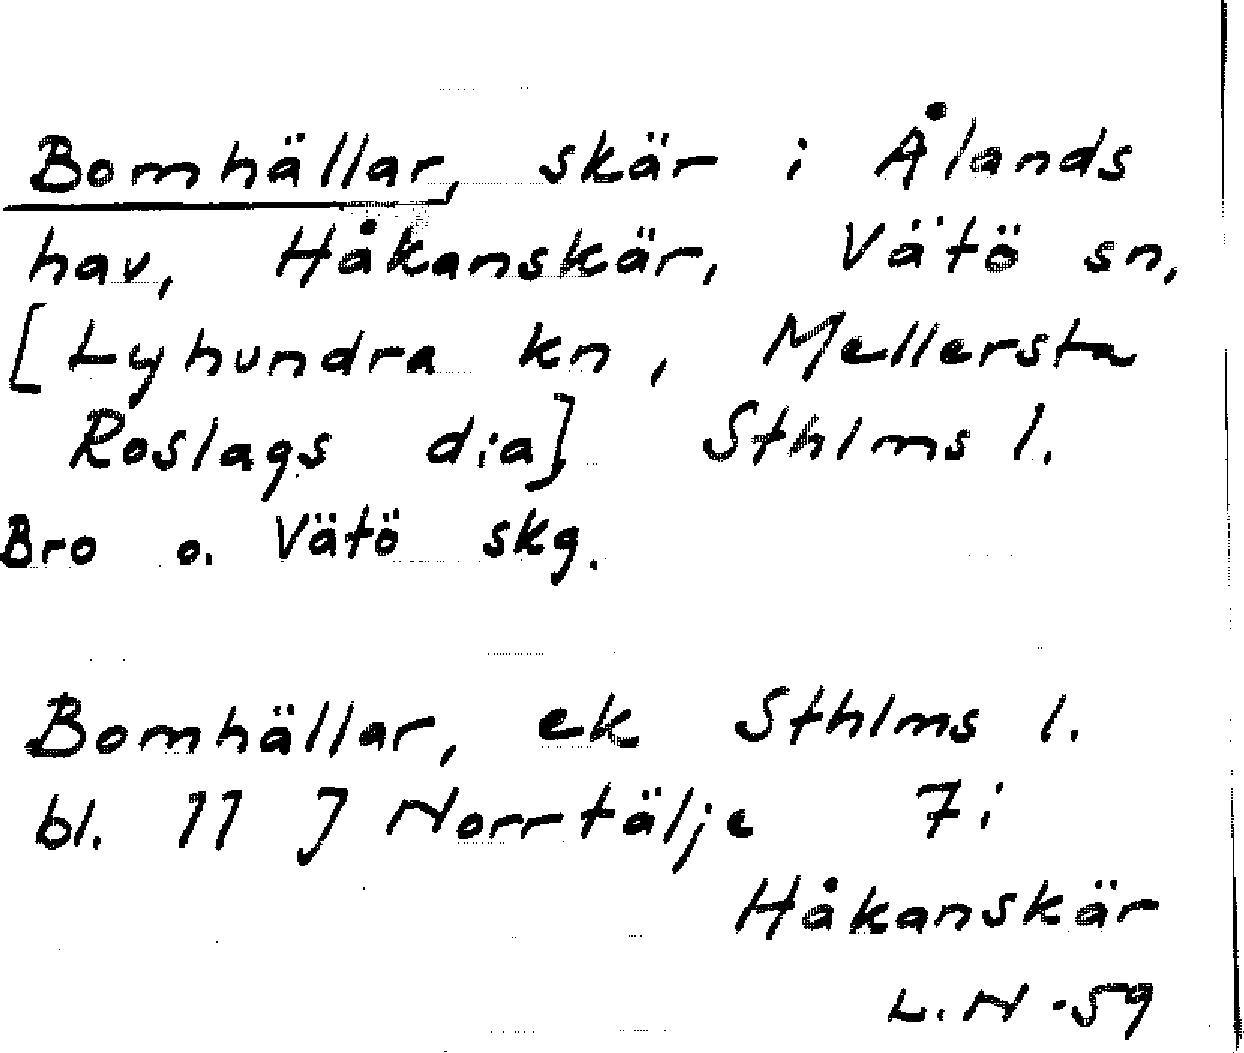 Bomhällar, skär i Ålands
hav, Håkanskär, Vätö sn,
[Lyhundra kn, Mellersta
Roslags dia] Sthlms l.
Bro o. Vätö skg.
Bomhällar, ek Sthlms l.
bl. 11 J Norrtälje 7i
Håkanskär
L. N -59